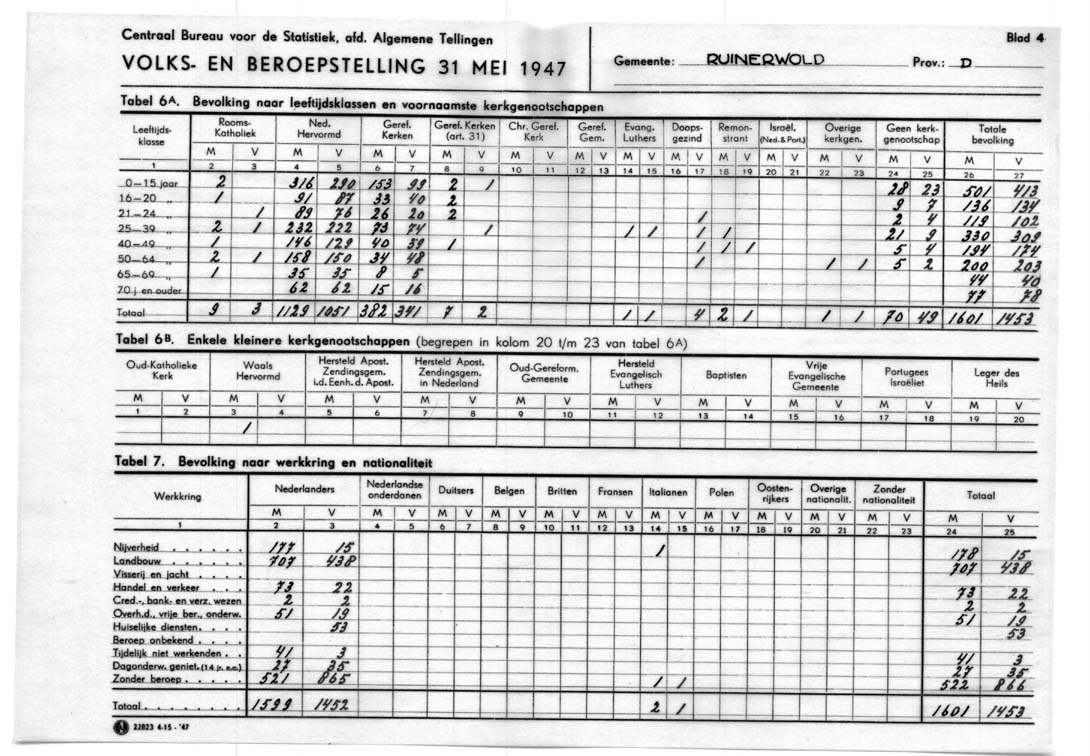 Centraal Bureau voor de Statistiek, afd. Algemene Tellingen
Blad 4
VOLKS- EN BEROEPSTELLING 31 MEI 1947
Gemeente: RUINERWOLD Prov.: D
Tabel 6A. Bevolking naar leeftijdsklassen en voornaamste kerkgenootschappen
Leeftijds-klasse Rooms-Katholiek Ned. Hervormd Geref. Kerken Geref. Kerken (art. 31) Chr. Geref. Kerk Geref. Gem. Evang. Luthers Doops-gezind Remon-strant Israël. (Ned. & Port.) Overige kerkgen. Geen kerk-genootschap Totale bevolking
M V M V M V M V M V M V M V M V M V M V M V M V M V
1 2 3 4 5 6 7 8 9 10 11 12 13 14 15 16 17 18 19 20 21 22 23 24 25 26 27
0—15 jaar 2 316 290 153 99 2 1 28 23 501 413
16—20 „ 1 91 87 33 40 2 9 7 136 134
21—24 „ 1 89 76 26 20 2 1 2 4 119 102
25—39 „ 2 1 232 222 73 74 1 1 1 1 1 21 9 330 309
40—49 „ 1 146 129 40 39 1 1 1 1 5 4 194 174
50—64 „ 2 1 158 150 34 48 1 1 1 5 2 200 203
65—69 „ 1 35 35 8 5 44 40
70 j en ouder 62 62 15 16 77 78
Totaal 9 3 1129 1051 382 341 7 2 1 1 4 2 1 1 1 70 49 1601 1453
Tabel 6B. Enkele kleinere kerkgenootschappen (begrepen in kolom 20 t/m 23 van tabel 6A)
Oud-Katholieke Kerk Waals Hervormd Hersteld Apost. Zendingsgem. i.d. Eenh. d. Apost. Hersteld Apost. Zendingsgem. in Nederland Oud-Gereform. Gemeente Hersteld Evangelisch Luthers Baptisten Vrije Evangelische Gemeente Portugees Israëliet Leger des Heils
M V M V M V M V M V M V M V M V M V M V
1 2 3 4 5 6 7 8 9 10 11 12 13 14 15 16 17 18 19 20
1
Tabel 7. Bevolking naar werkkring en nationaliteit
Werkkring Nederlanders Nederlandse onderdanen Duitsers Belgen Britten Fransen Italianen Polen Oosten-rijkers Overige nationalit. Zonder nationaliteit Totaal
M V M V M V M V M V M V M V M V M V M V M V M V
1 2 3 4 5 6 7 8 9 10 11 12 13 14 15 16 17 18 19 20 21 22 23 24 25
Nijverheid . . . . . . 177 15 1 178 15
Landbouw . . . . . . 707 438 707 438
Visserij en jacht . . . .
Handel en verkeer . . . . 73 22 73 22
Cred.-, bank- en verz. wezen 2 2 2 2
Overh.d., vrije ber., onderw. 51 19 51 19
Huiselijke diensten. . . . 53 53
Beroep onbekend . . . .
Tijdelijk niet werkenden . . 41 3 41 3
Dagonderw. geniet. (14 jr. e.o.) 27 35 27 35
Zonder beroep. . . . . 521 865 1 1 522 866
Totaal . . . . . . . 1599 1452 2 1 1601 1453
22823 4-15 - '47